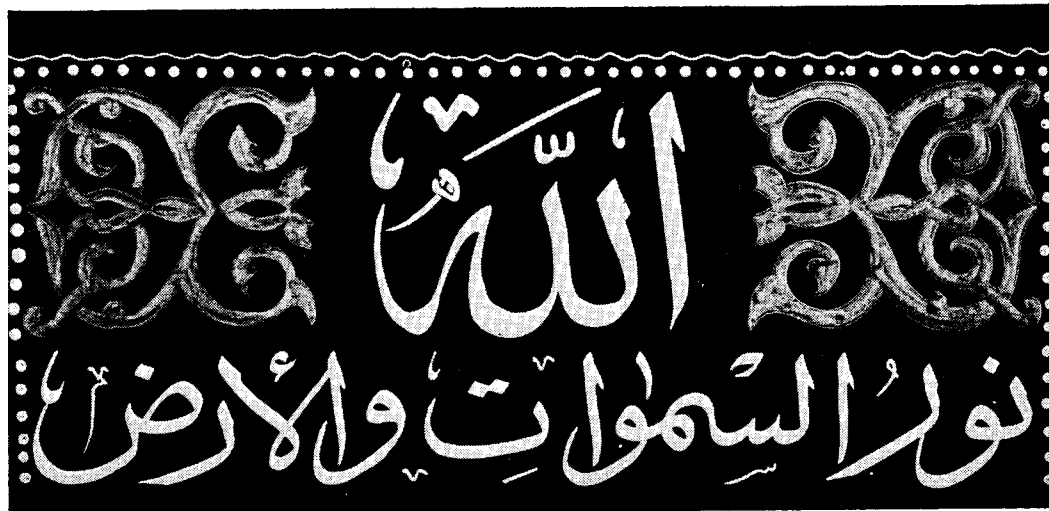 اللّٰهُ
نورُ السّمٰوَاتِ والأرض